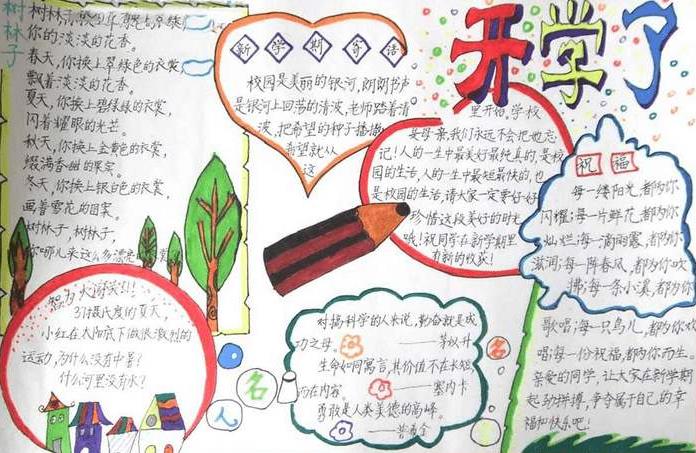 树林子
你的淡淡的花香。
春天,你换上翠绿色的衣裳,
飘着淡淡的花香。
夏天,你换上碧绿绿的衣裳,
闪着耀眼的光芒。
秋天,你换上金黄色的衣裳,
缀满香甜的果实。
冬天,你换上银白色的衣裳,
画着雪花的图案。
树林子,树林子
你哪儿来这么多漂亮的
新学期寄语
校园是美丽的银河,朗朗书声
是银河上回荡的清波,老师踏着清
波,把希望的种子播撒
希望就从
这
开学了
里开始,学校
是母亲,我们永远不会把他忘
记!人的一生中最美好最纯真的,是校
园的生活,人的一生中最短最快的,也
是校园的生活,请大家一定要好好
珍惜这段美好的时光
哦!祝同学在新学期里
有新的收获!
祝福
每一缕阳光,都为你
闪耀;每一片鲜花,都为你
灿烂;每一滴雨露,都为你
滋润;每一阵春风,都为你吹
拂;每一条小溪,都为你
歌唱;每一只鸟儿,都为你
唱;每一份祝福,都为你而生。
亲爱的同学,让大家在新学期
起,努力拼搏,争夺属于自己的幸
福和快乐吧!
智力火海笑!!
37摄氏度的夏天,
小红在太阳底下做很激烈的
运动,为什么没有中暑?
什么河里没有水?
名人名言
对搞科学的人来说,勤奋就是成
功之母。 ——茅以升
生命如同寓言,其价值不在长短,
而在内容。 ——塞内卡
勇敢是人类美德的高峰。
——普希金